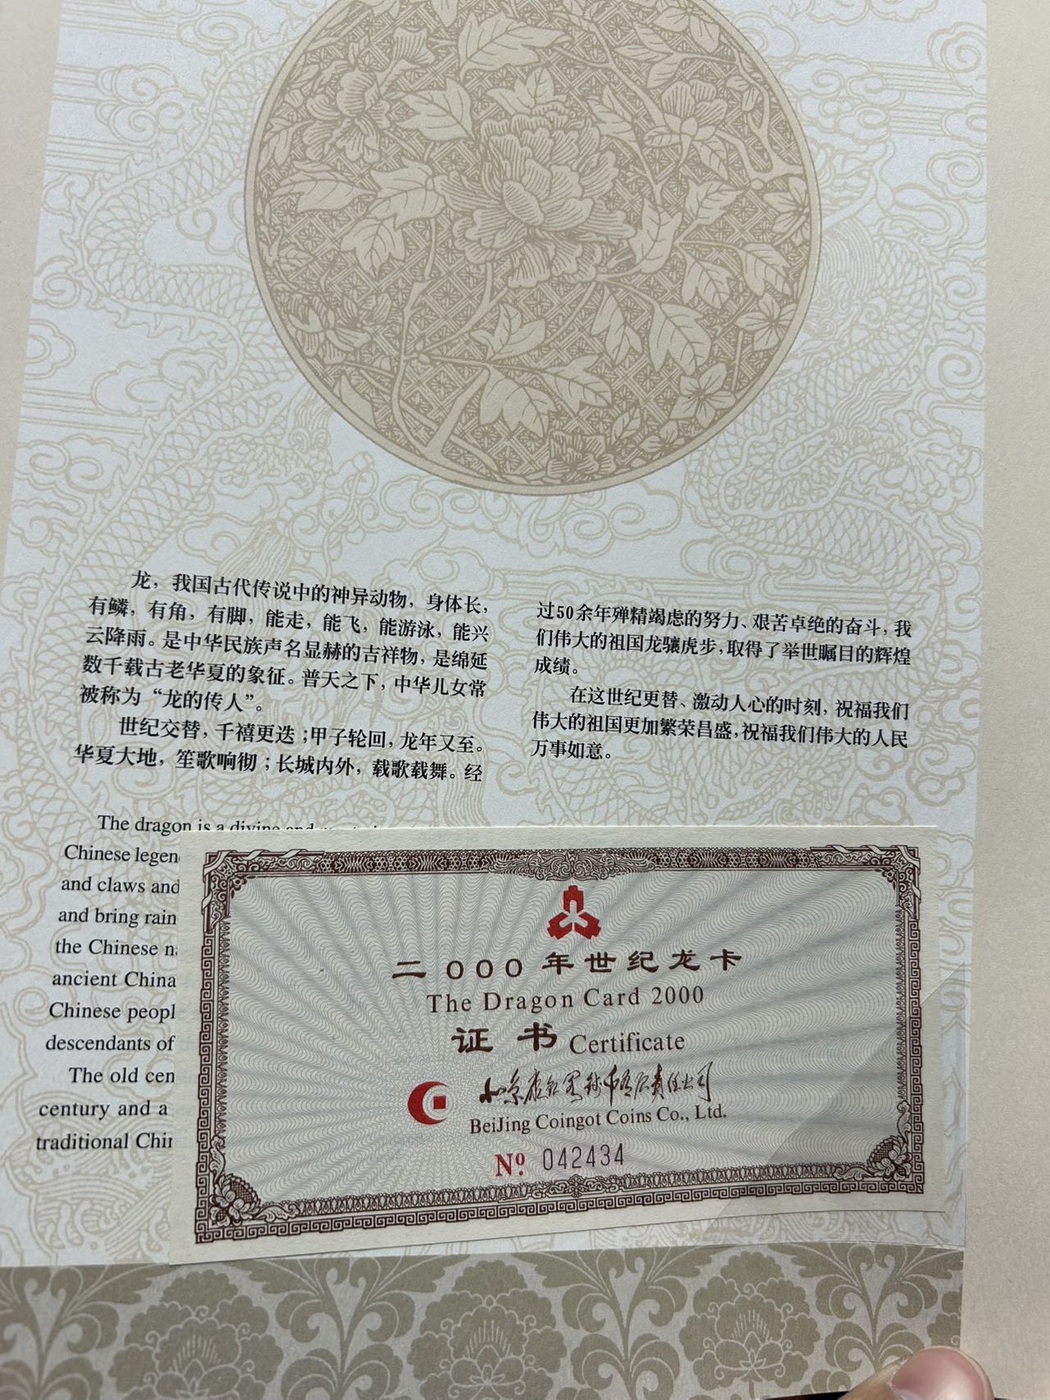 龙，我国古代传说中的神异动物，身体长，
有鳞，有角，有脚，能走，能飞，能游泳，能兴
云降雨。是中华民族声名显赫的吉祥物，是绵延
数千载古老华夏的象征。普天之下，中华儿女常
被称为“龙的传人”。
世纪交替，千禧更迭；甲子轮回，龙年又至。
华夏大地，笙歌响彻；长城内外，载歌载舞。经
过50余年殚精竭虑的努力、艰苦卓绝的奋斗，我
们伟大的祖国龙骧虎步，取得了举世瞩目的辉煌
成绩。
在这世纪更替、激动人心的时刻，祝福我们
伟大的祖国更加繁荣昌盛，祝福我们伟大的人民
万事如意。
The dragon is a divine and
Chinese legen
and claws and
and bring rain
the Chinese n
ancient China
Chinese peopl
descendants of
The old cen
century and a
traditional Chi
二000年世纪龙卡
The Dragon Card 2000
证书 Certificate
BeiJing Coingot Coins Co., Ltd.
Nº. 042434